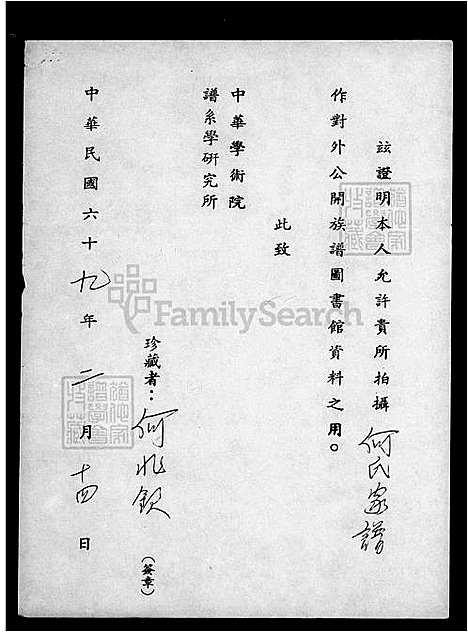 茲證明本人允許貴所拍攝何氏家譜
作對外公開族譜圖書館資料之用。
此致
中華學術院
譜系學研究所
珍藏者：何兆欽
(簽章)
中華民國六十九年二月十四日
FamilySearch